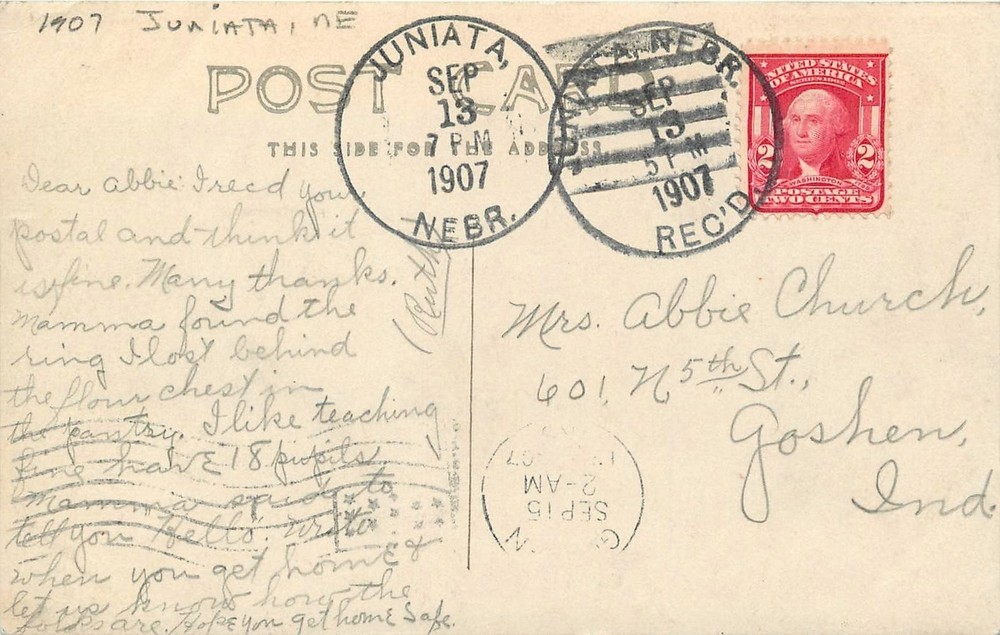 1907 JUNIATA, NE
POST CARD
THIS SIDE FOR THE ADDRESS
JUNIATA,
SEP
13
7 PM
1907
NEBR.
JUNIATA, NEBR.
SEP
13
5 PM
1907
REC'D.
UNITED STATES
OF AMERICA
SERIES 1902
2 2
WASHINGTON
POSTAGE
TWO CENTS
Dear Abbie: I rec'd your
postal and think it
is fine. Many thanks.
Mamma found the
ring I lost behind
the flour chest in
the pantry. I like teaching
fine have 18 pupils
Mamma said to
tell you "Hello". Write
when you get home &
let us know how the
folks are. Hope you get home safe.
(Ruth)
Mrs. Abbie Church,
601, N 5th St.,
Goshen,
Ind.
SEP 15
2-AM